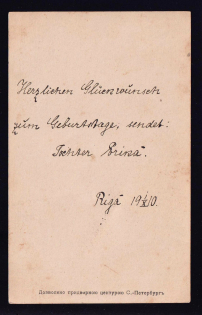 Herzlichen Glückwunsch
zum Geburtstage, sendet:
Tochter
Rigā 19 10.
Дозволено цензурою С.-Петербургъ